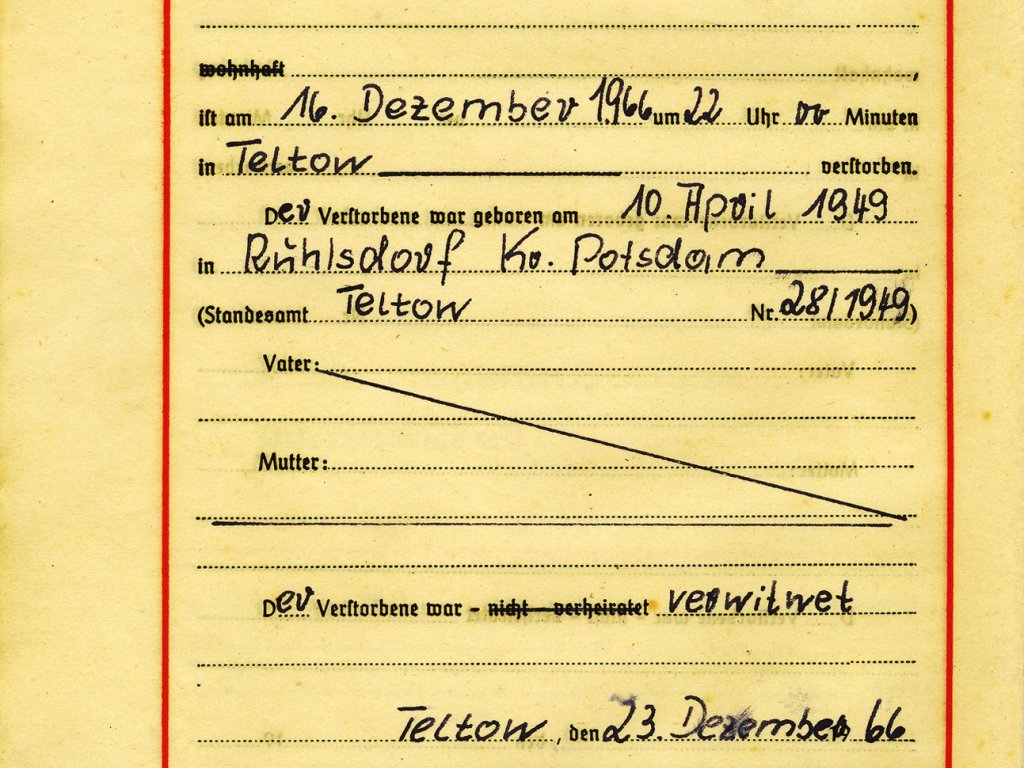 wohnhaft ,
ist am 16. Dezember 1966 um 22 Uhr 00 Minuten
in Teltow verstorben.
Der Verstorbene war geboren am 10. April 1949
in Ruhlsdorf Kr. Potsdam
(Standesamt Teltow Nr. 28/1949)
Vater:
Mutter:
Der Verstorbene war - nicht - verheiratet verwitwet
Teltow, den 23. Dezember 66